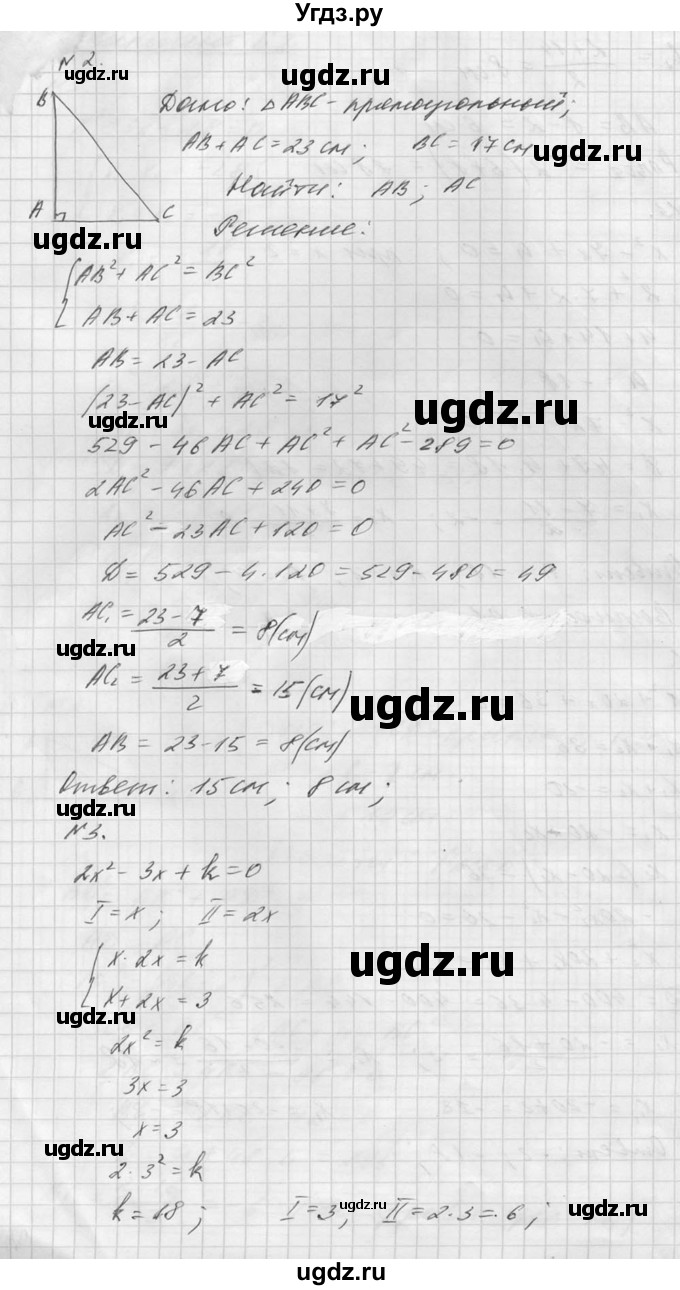 Угдз.ру
№2.
ugdz.ru
ugdz.ru
B
A
C
Дано: △ABC - прямоугольный;
AB + AC = 23 см; BC = 17 см
ugdz.ru
Найти: AB; AC
ugdz.ru
Решение:
AB² + AC² = BC²
AB + AC = 23
ugdz.ru
AB = 23 - AC
(23 - AC)² + AC² = 17²
ugdz.ru
ugdz.ru
529 - 46AC + AC² + AC² - 289 = 0
2AC² - 46AC + 240 = 0
AC² - 23AC + 120 = 0
ugdz.ru
D = 529 - 4·120 = 529 - 480 = 49
AC₁ = (23 - 7)/2 = 8 (см)
ugdz.ru
AC₂ = (23 + 7)/2 = 15 (см)
ugdz.ru
AB = 23 - 15 = 8 (см)
Ответ: 15 см; 8 см;
ugdz.ru
№3.
2x² - 3x + k = 0
I = x; II = 2x
x·2x = k
ugdz.ru
x + 2x = 3
ugdz.ru
2x² = k
3x = 3
x = 3
ugdz.ru
2·3² = k
k = 18; I = 3; II = 2·3 = 6;
ugdz.ru
ugdz.ru
ugdz.ru